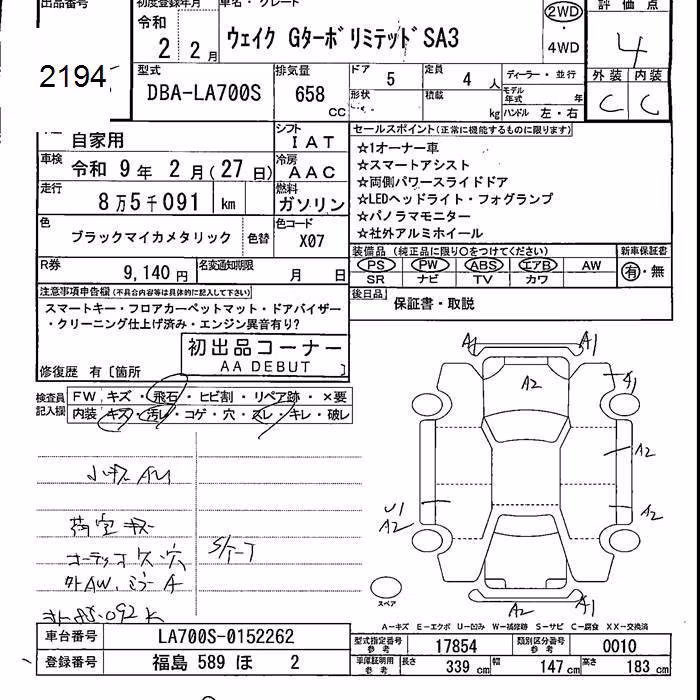 出品番号
2194
初度登録年月
令和
2 2月
車名・グレード
ウェイク Gターボリミテッド SA3
2WD
4WD
評価点
4
型式
DBA-LA700S
排気量
658
CC
ドア
5
定員
4 人
形状
積載
kg
ディーラー・並行
モデル年式 年
ハンドル 左・右
外装 内装
C C
自家用
シフト
IAT
車検
令和 9年 2月(27日)
冷房
AAC
走行
8万5千091 km
燃料
ガソリン
色
ブラックマイカメタリック
色替
色コード
X07
R券
9,140円
名変通知期限
月 日
セールスポイント(正常に機能するものに限ります)
☆1オーナー車
☆スマートアシスト
☆両側パワースライドドア
☆LEDヘッドライト・フォグランプ
☆パノラマモニター
☆社外アルミホイール
装備品 (純正品に限り○をつけてください)
PS PW ABS エアB AW
SR ナビ TV カワ
新車保証書
有・無
後日品
保証書・取説
注意事項申告欄(不具合内容等は具体的に記入して下さい)
スマートキー・フロアカーペットマット・ドアバイザー
・クリーニング仕上げ済み・エンジン異音有り?
初出品コーナー
AA DEBUT
修復歴 有〔箇所 〕
検査員記入欄
FW キズ・飛石・ヒビ割・リペア跡・×要
内装 キズ・汚レ・コゲ・穴・スレ・キレ・破レ
A1 A1
A2
A1
A2
A2
U1
A2
A1 A1
A2
スペア
A－キズ E－エクボ U－凹み W－補修跡 S－サビ C－腐食 XX－交換済
車台番号
LA700S-0152262
登録番号
福島 589 ほ 2
型式指定番号 参考
17854
類別区分番号 参考
0010
車庫証明用 参考
長さ 339 cm
幅 147 cm
高さ 183 cm